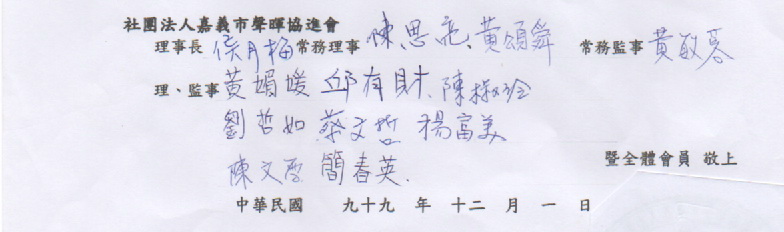 社團法人嘉義市聲暉協進會
理事長 侯月梅 常務理事 陳思亮、黃頌舜 常務監事 黃敏
理、監事 黃媚媛 邱有財、陳淑玲
劉哲如 蔡文哲 楊富美
陳文 簡春英.
暨全體會員 敬上
中華民國 九十九 年 十二 月 一 日